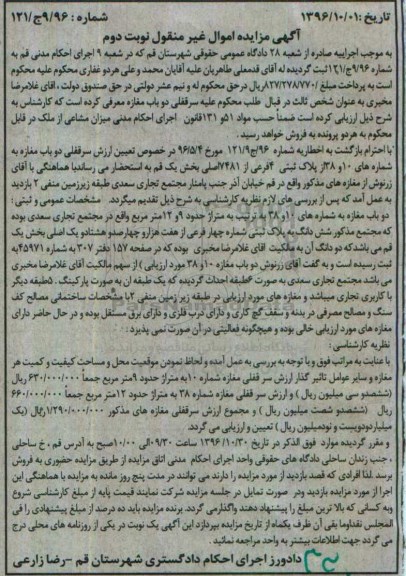 تاریخ: ۱۳۹۶/۱۰/۰۱
شماره: ۹/۹۶ج/۱۲۱
آگهی مزایده اموال غیر منقول نوبت دوم
به موجب اجراییه صادره از شعبه ۲۸ دادگاه عمومی حقوقی شهرستان قم که در شعبه ۹ اجرای احکام مدنی قم به
شماره ۹/۹۶ج/۱۲۱ ثبت گردیده له آقای قدمعلی طاهریان علیه آقایان محمد و علی هردو غفاری محکوم علیه محکوم
است به پرداخت مبلغ ۸۲۷/۲۷۸/۷۷۰ ریال درحق محکوم له و نیم عشر دولتی در حق صندوق دولت ، اقای غلامرضا
مخبری به عنوان شخص ثالث در قبال طلب محکوم علیه سرقفلی دو باب مغازه معرفی کرده است که کارشناس به
شرح ذیل ارزیابی کرده است ضمناً حسب مواد ۵۱ و ۱۳۱ قانون اجرای احکام مدنی میزان مشاعی از ملک در قابل
محکوم به هردو پرونده به فروش خواهد رسید .
با احترام بازگشت به اخطاریه شماره ۹۶/ج/۱۲۱۹ مورخ ۹۶/۵/۴ در خصوص تعیین ارزش سرقفلی دو باب مغازه به
شماره های ۱۰ و ۳۸ از پلاک ثبتی ۴فرعی از ۷۴۸۱اصلی بخش یک قم به استحضار می رساند با هماهنگی با آقای
زرنوش از مغازه های مذکور واقع در قم خیابان آذر جنب پامنار مجتمع تجاری سعدی طبقه زیرزمین منفی ۲ بازدید
به عمل آمد که پس از بررسی های لازم نظریه کارشناسی به شرح ذیل تقدیم میگردد. مشخصات عمومی و ثبتی :
دو باب مغازه به شماره های ۱۰ و ۳۸ به ترتیب به متراژ حدود ۹و ۱۲متر مربع واقع در مجتمع تجاری سعدی بوده
که مجتمع مذکور شش دانگ به پلاک ثبتی شماره چهار فرعی از هفت هزارو چهارصدو هشتادو یک اصلی بخش یک
قم می باشد که دو دانگ آن به مالکیت اقای غلامرضا مخبری بوده که در صفحه ۱۵۷ دفتر ۳۰۷ به شماره ۴۵۹۷۱به
ثبت رسیده است و به گفت آقای زرنوش دو باب مغازه ۱۰ و ۳۸ مورد ارزیابی ) از سهم مالکیت آقای غلامرضا مخبری
می باشد مجتمع تجاری سعدی به صورت ۶طبقه احداث گردیده که یک طبقه ان به صورت پارکینگ . ۵طبقه دیگر
با کاربری تجاری میباشد و مغازه های مورد ارزیابی در طبقه زیر زمین منفی ۲با مشخصات ساختمانی مصالح کف
سنگ و مصالح مصرفی در بدنه و سقف گچ کاری و دارای درب فلزی و دارای برق مستقل بوده و در حال حاضر دارای
مغازه های مورد ارزیابی خالی بوده و هیچگونه فعالیتی در آن صورت نمی پذیرد :
نظریه کارشناسی :
با عنایت به مراتب فوق و با توجه به بررسی به عمل آمده و لحاظ نمودن موقعیت محل و مساحت کیفیت و کمیت هر
مغازه و سایر عوامل تاثیر گذار ارزش سر قفلی مغازه شماره ۱۰به متراژ حدود ۹متر مربع جمعاً ۶۳۰/۰۰۰/۰۰۰ ریال
(ششصدو سی میلیون ریال ) و ارزش سر قفلی مغازه شماره ۳۸ به متراژ حدود ۱۲متر مربع جمعاً ۶۶۰/۰۰۰/۰۰۰
ریال (ششصدو شصت میلیون ریال ) و مجموع ارزش سرقفلی مغازه های مذکور ۱/۲۹۰/۰۰۰/۰۰۰ریال (یک
میلیاردودویست و نودمیلیون ریال ) تعیین و ارزیابی می گردد.
و مقرر گردیده موارد فوق الذکر در تاریخ ۱۳۹۶/۱۰/۳۰ ساعت ۰۹/۳۰الی ۱۰/۰۰صبح به آدرس قم ، خ ساحلی
، جنب زندان ساحلی دادگاه های حقوقی واحد اجرای احکام مدنی اتاق مزایده از طریق مزایده حضوری به فروش
برسد .لذا افرادی که قصد بازدید از مورد مزایده را دارند می توانند در مدت پنج روز مانده به مزایده با هماهنگی این
اجرا از مورد مزایده بازدید ودر صورت تمایل در جلسه مزایده شرکت نمایند قیمت پایه از مبلغ کارشناسی شروع
وبه کسانی که بالا ترین مبلغ را پیشنهاد دهند واگذارمی گردد. برنده مزایده باید ده درصد از مبلغ پیشنهادی را فی
المجلس نقداوما بقی آن ظرف یکماه از تاریخ مزایده بپردازد این آگهی یک نوبت در یکی از روزنامه های محلی درج
می گردد جهت اطلاعات بیشتر به واحد مراجعه نمائید .
دادورز اجرای احکام دادگستری شهرستان قم -رضا زارعی